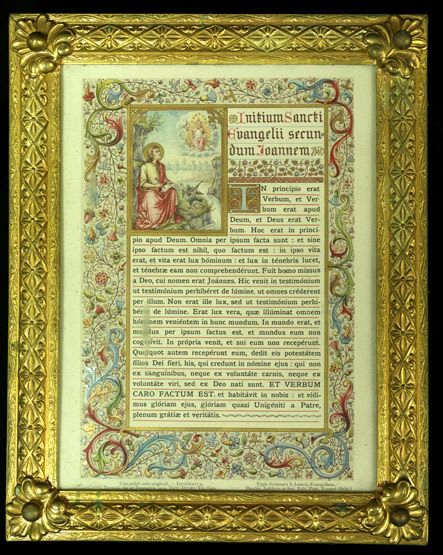 Initium Sancti
Evangelii secun-
dum Joannem
IN princípio erat
Verbum, et Ver-
bum erat apud
Deum, et Deus erat Ver-
bum. Hoc erat in princí-
pio apud Deum. Omnia per ipsum facta sunt : et sine
ipso factum est nihil, quo factum est : in ipso vita
erat, et vita erat lux hóminum : et lux in ténebris lucet,
et ténebræ eam non comprehendérunt. Fuit homo missus
a Deo, cui nomen erat Joánnes. Hic venit in testimónium
ut testimónium perhibéret de lúmine, ut omnes créderent
per illum. Non erat ille lux, sed ut testimónium perhi-
béret de lúmine. Erat lux vera, quæ illúminat omnem
hóminem veniéntem in hunc mundum. In mundo erat, et
mundus per ipsum factus est, et mundus eum non
cognóvit. In própria venit, et sui eum non recepérunt.
Quotquot autem recepérunt eum, dedit eis potestátem
fílios Dei fíeri, his, qui credunt in nómine ejus : qui non
ex sanguínibus, neque ex voluntáte carnis, neque ex
voluntáte viri, sed ex Deo nati sunt. ET VERBUM
CARO FACTUM EST, et habitávit in nobis : et vídi-
mus glóriam ejus, glóriam quasi Unigéniti a Patre,
plenum grátiæ et veritátis.
Concordat cum originali. — Imprimatur.
Typis Societatis S. Joannis Evangelistæ,